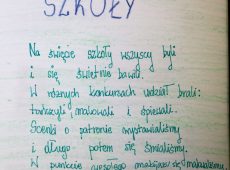 SZKOŁY
Na święcie szkoły wszyscy byli
i się świetnie bawili.
W różnych konkursach udział brali:
tańczyli, malowali i śpiewali.
Scenki o patronie wystawialiśmy
i długo potem się śmialiśmy.
W punkcie wesołego makijażu się malowaliśmy